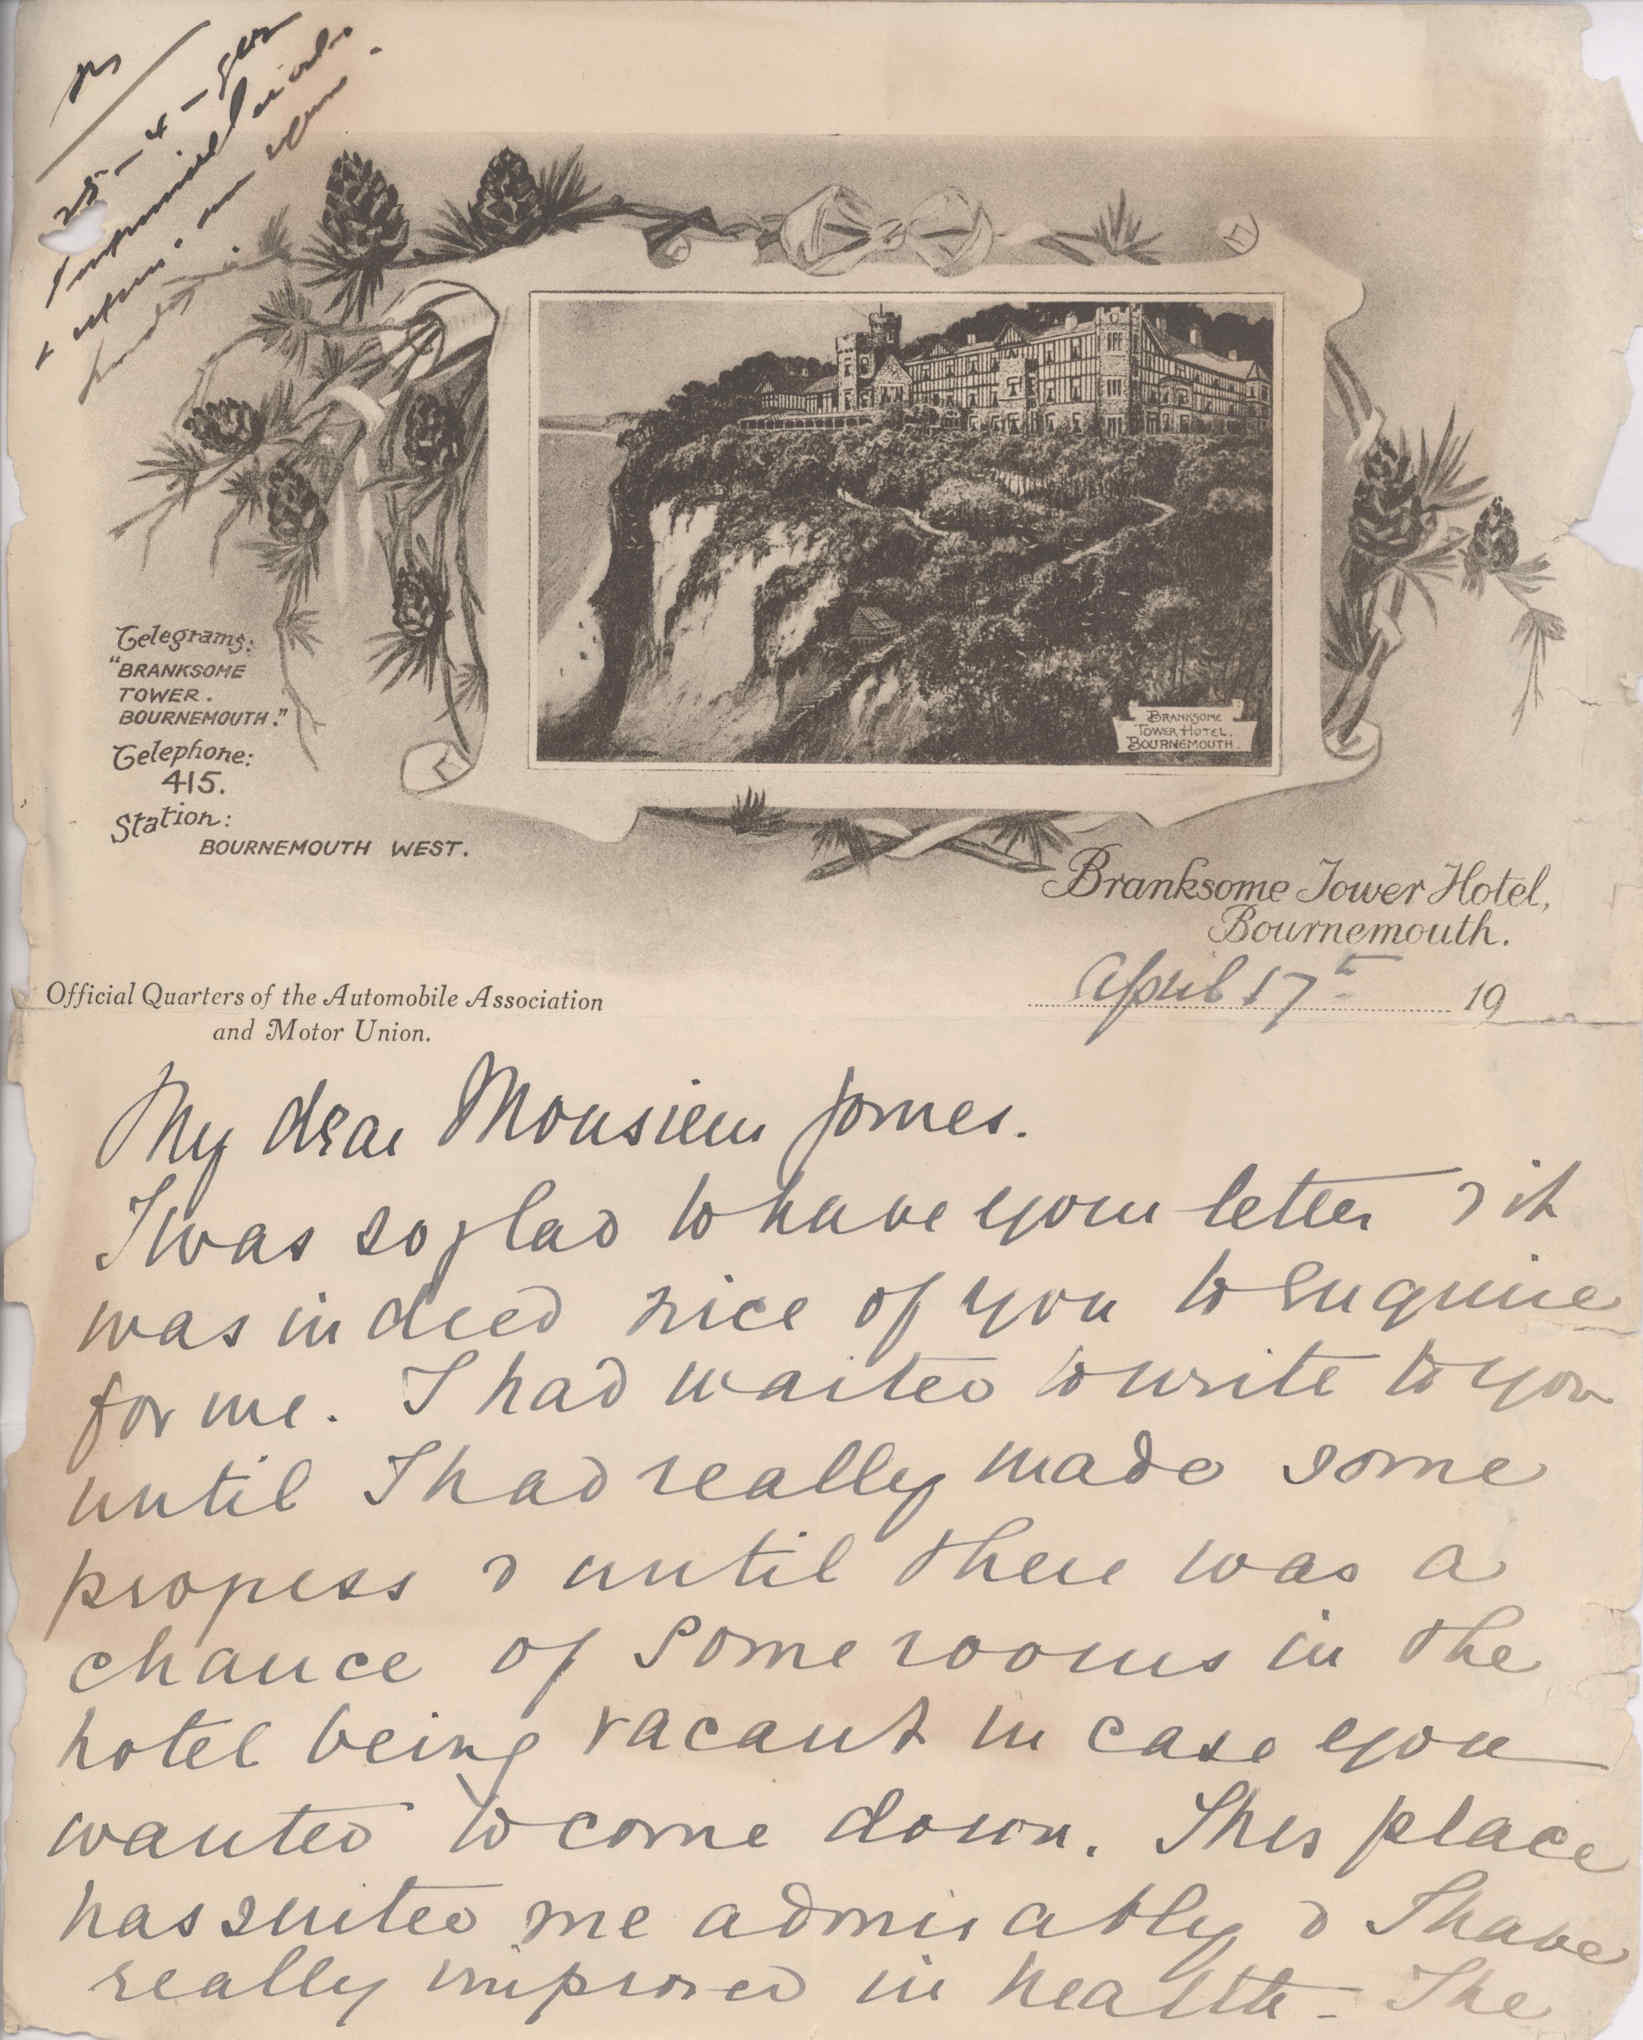 25-4-
Telegrams:
"BRANKSOME
TOWER.
BOURNEMOUTH."
Telephone:
415.
Station:
BOURNEMOUTH WEST.
BRANKSOME
TOWER HOTEL.
BOURNEMOUTH
Branksome Tower Hotel,
Bournemouth.
Official Quarters of the Automobile Association
and Motor Union.
April 17th 19
My dear Monsieur Jomes.
I was so glad to have your letter & it
was indeed nice of you to enquire
for me. I had waited to write to you
until I had really made some
progress & until there was a
chance of some rooms in the
hotel being vacant in case you
wanted to come down. This place
has suited me admirably & I have
really improved in health - The